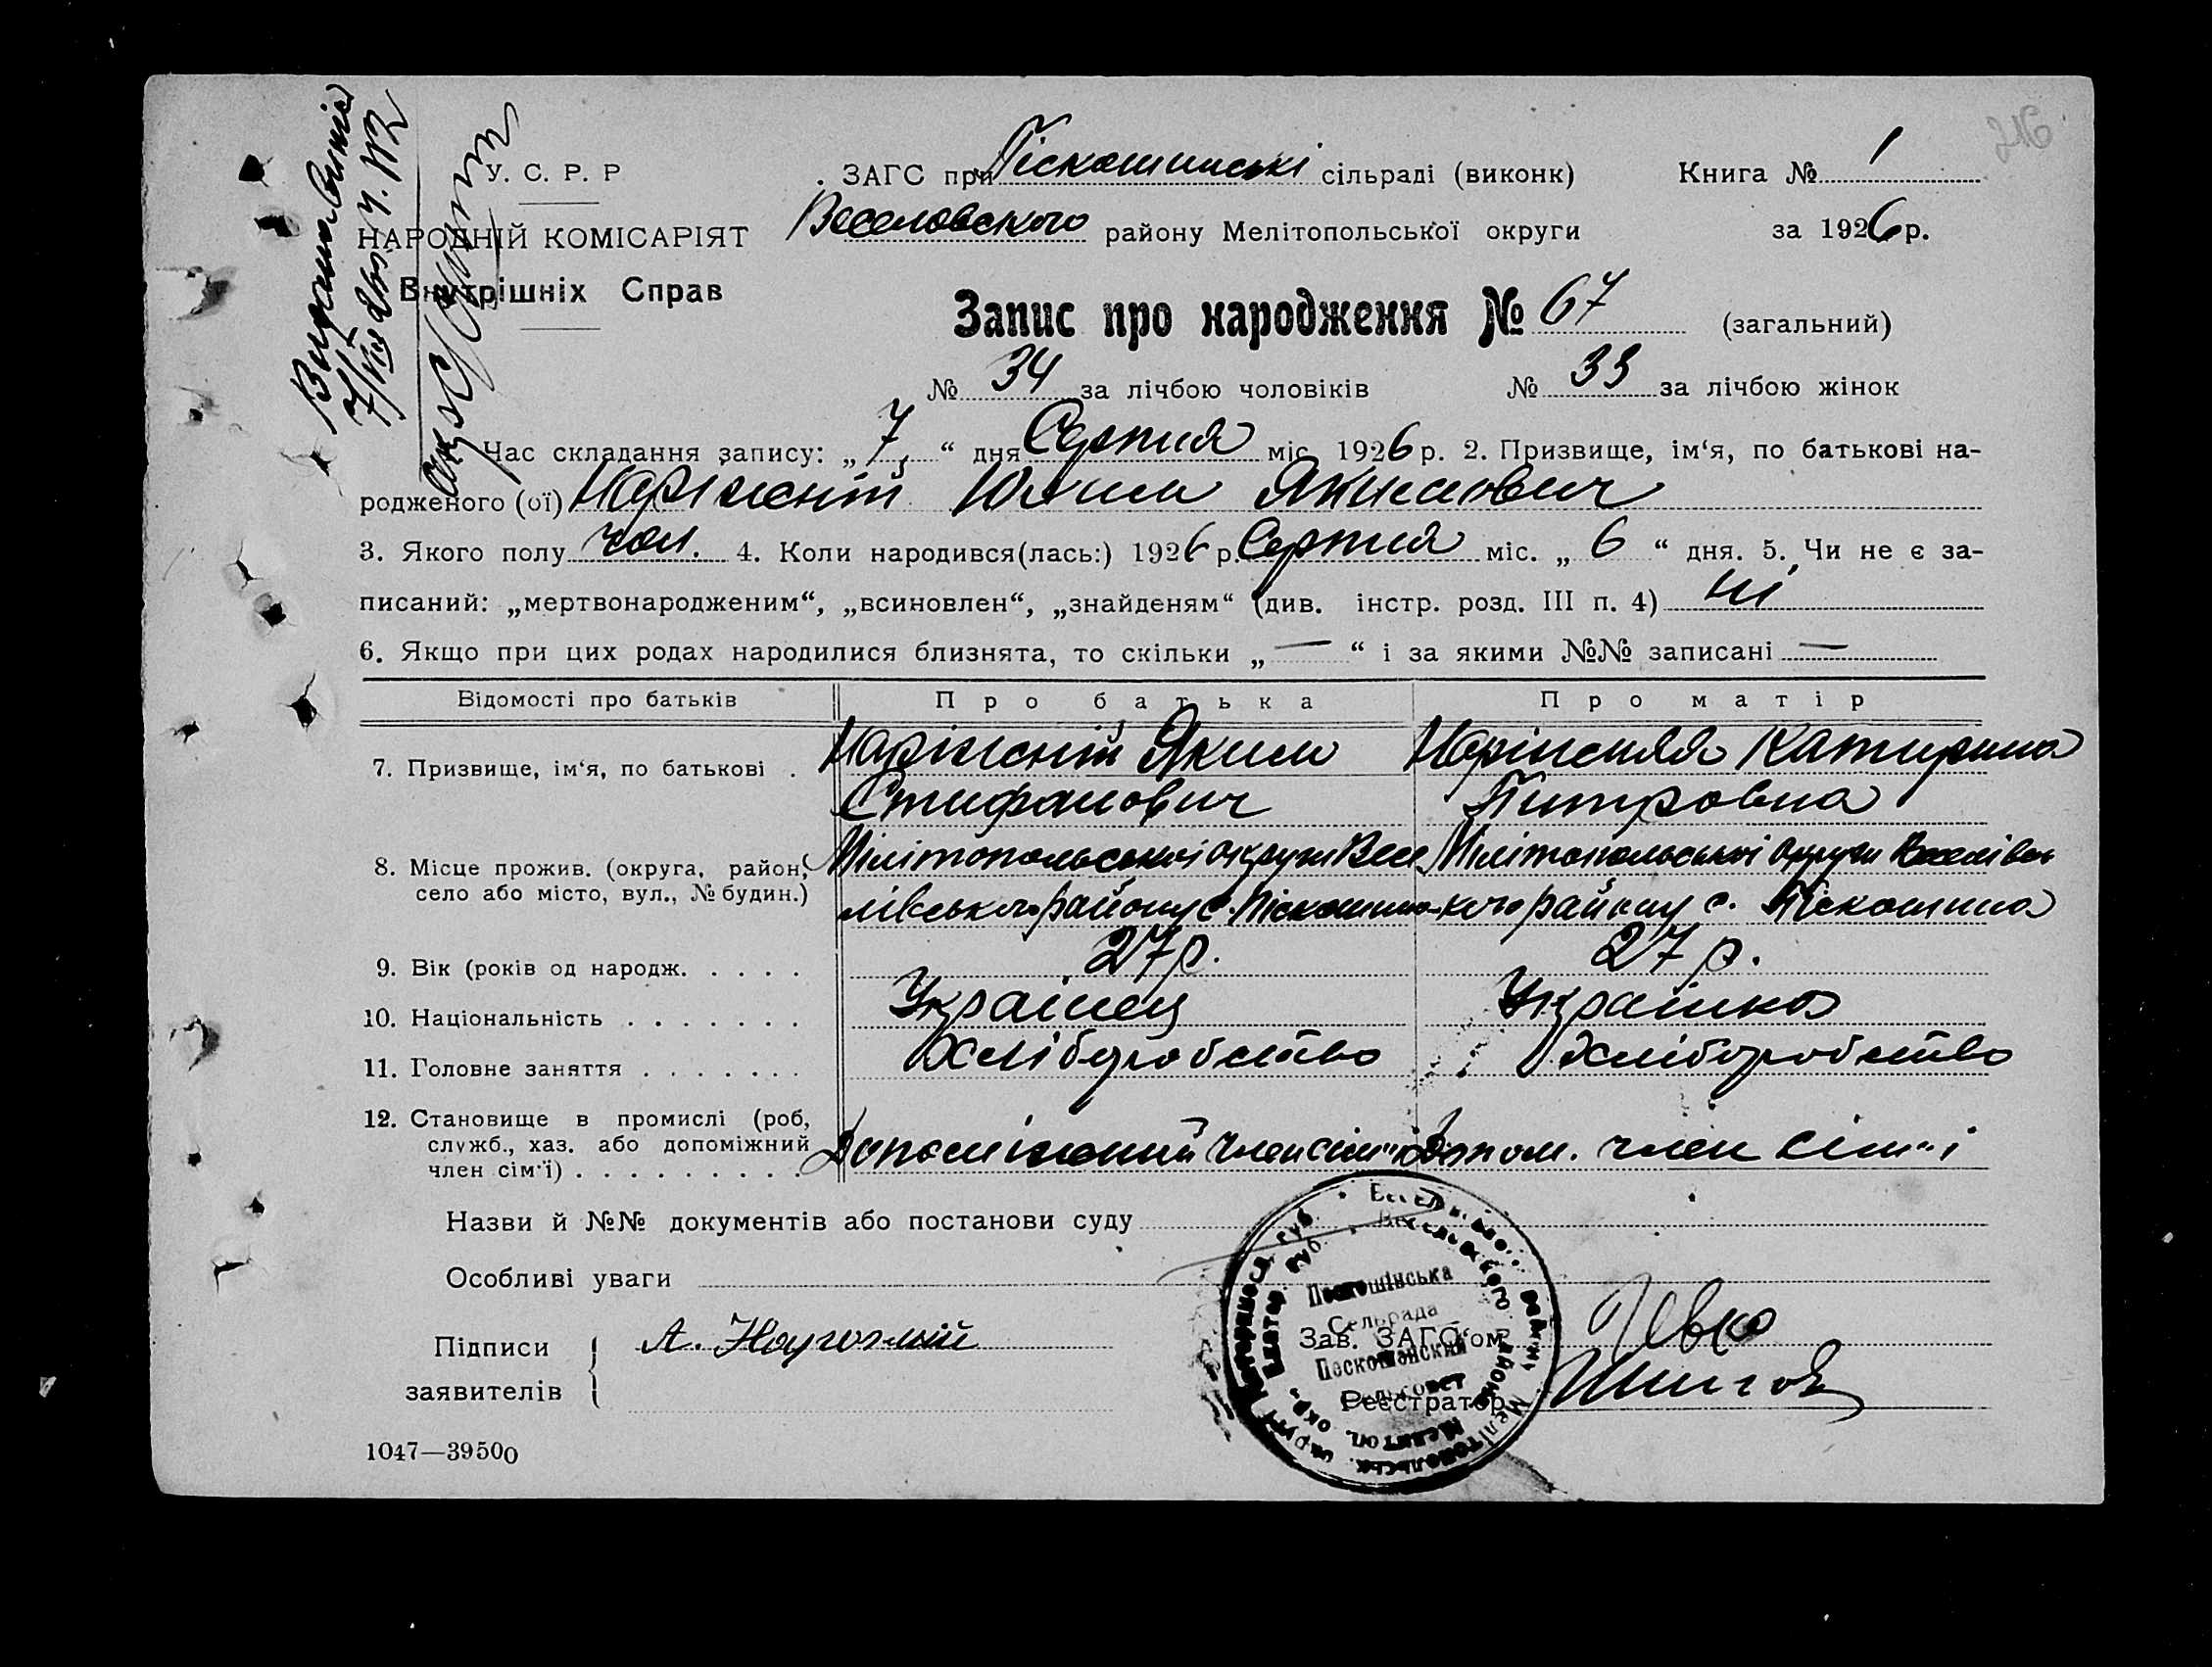 У. С. Р. Р
НАРОДНІЙ КОМІСАРІЯТ
Внутрішніх Справ
ЗАГС при Піскошинскі сільраді (виконк)
Книга № 1
Веселовского району Мелітопольської округи
за 1926 р.
Запис про народження № 67 (загальний)
№ 34 за лічбою чоловіків № 33 за лічбою жінок
Час складання запису: „7“ дня Серпня міс. 1926 р. 2. Призвище, ім‘я, по батькові на-
родженого (ої) Якимович
3. Якого полу чол. 4. Коли народився(лась:) 1926 р. Серпня міс. „6“ дня. 5. Чи не є за-
писаний: „мертвонародженим“, „всиновлен“, „знайденям“ (див. інстр. розд. III п. 4) ні
6. Якщо при цих родах народилися близнята, то скільки „—“ і за якими №№ записані —
Відомості про батьків Про батька Про матір
7. Призвище, ім‘я, по батькові . Наріжній Яким Наріжняя Катирина
Стифанович Питровна
8. Місце прожив. (округа, район, Мілітопольської округи Весе Мілітопольської округи Веселівсь
село або місто, вул., № будин.) лівського району с. Піскошино кого району с. Піскошина
9. Вік (років од народж. . . . . 27 р. 27 р.
10. Національність . . . . . . . Українец Українка
11. Головне заняття . . . . . . . Хліборобство Хліборобство
12. Становище в промислі (роб,
служб., хаз. або допоміжний Допоміжний член сім"ї Допом. член сім"ї
член сім‘ї) . . . . . . . . .
Назви й №№ документів або постанови суду
Особливі уваги
Підписи
заявителів
Зав. ЗАГС‘ом
Реєстратор
Сельрада
1047—39500